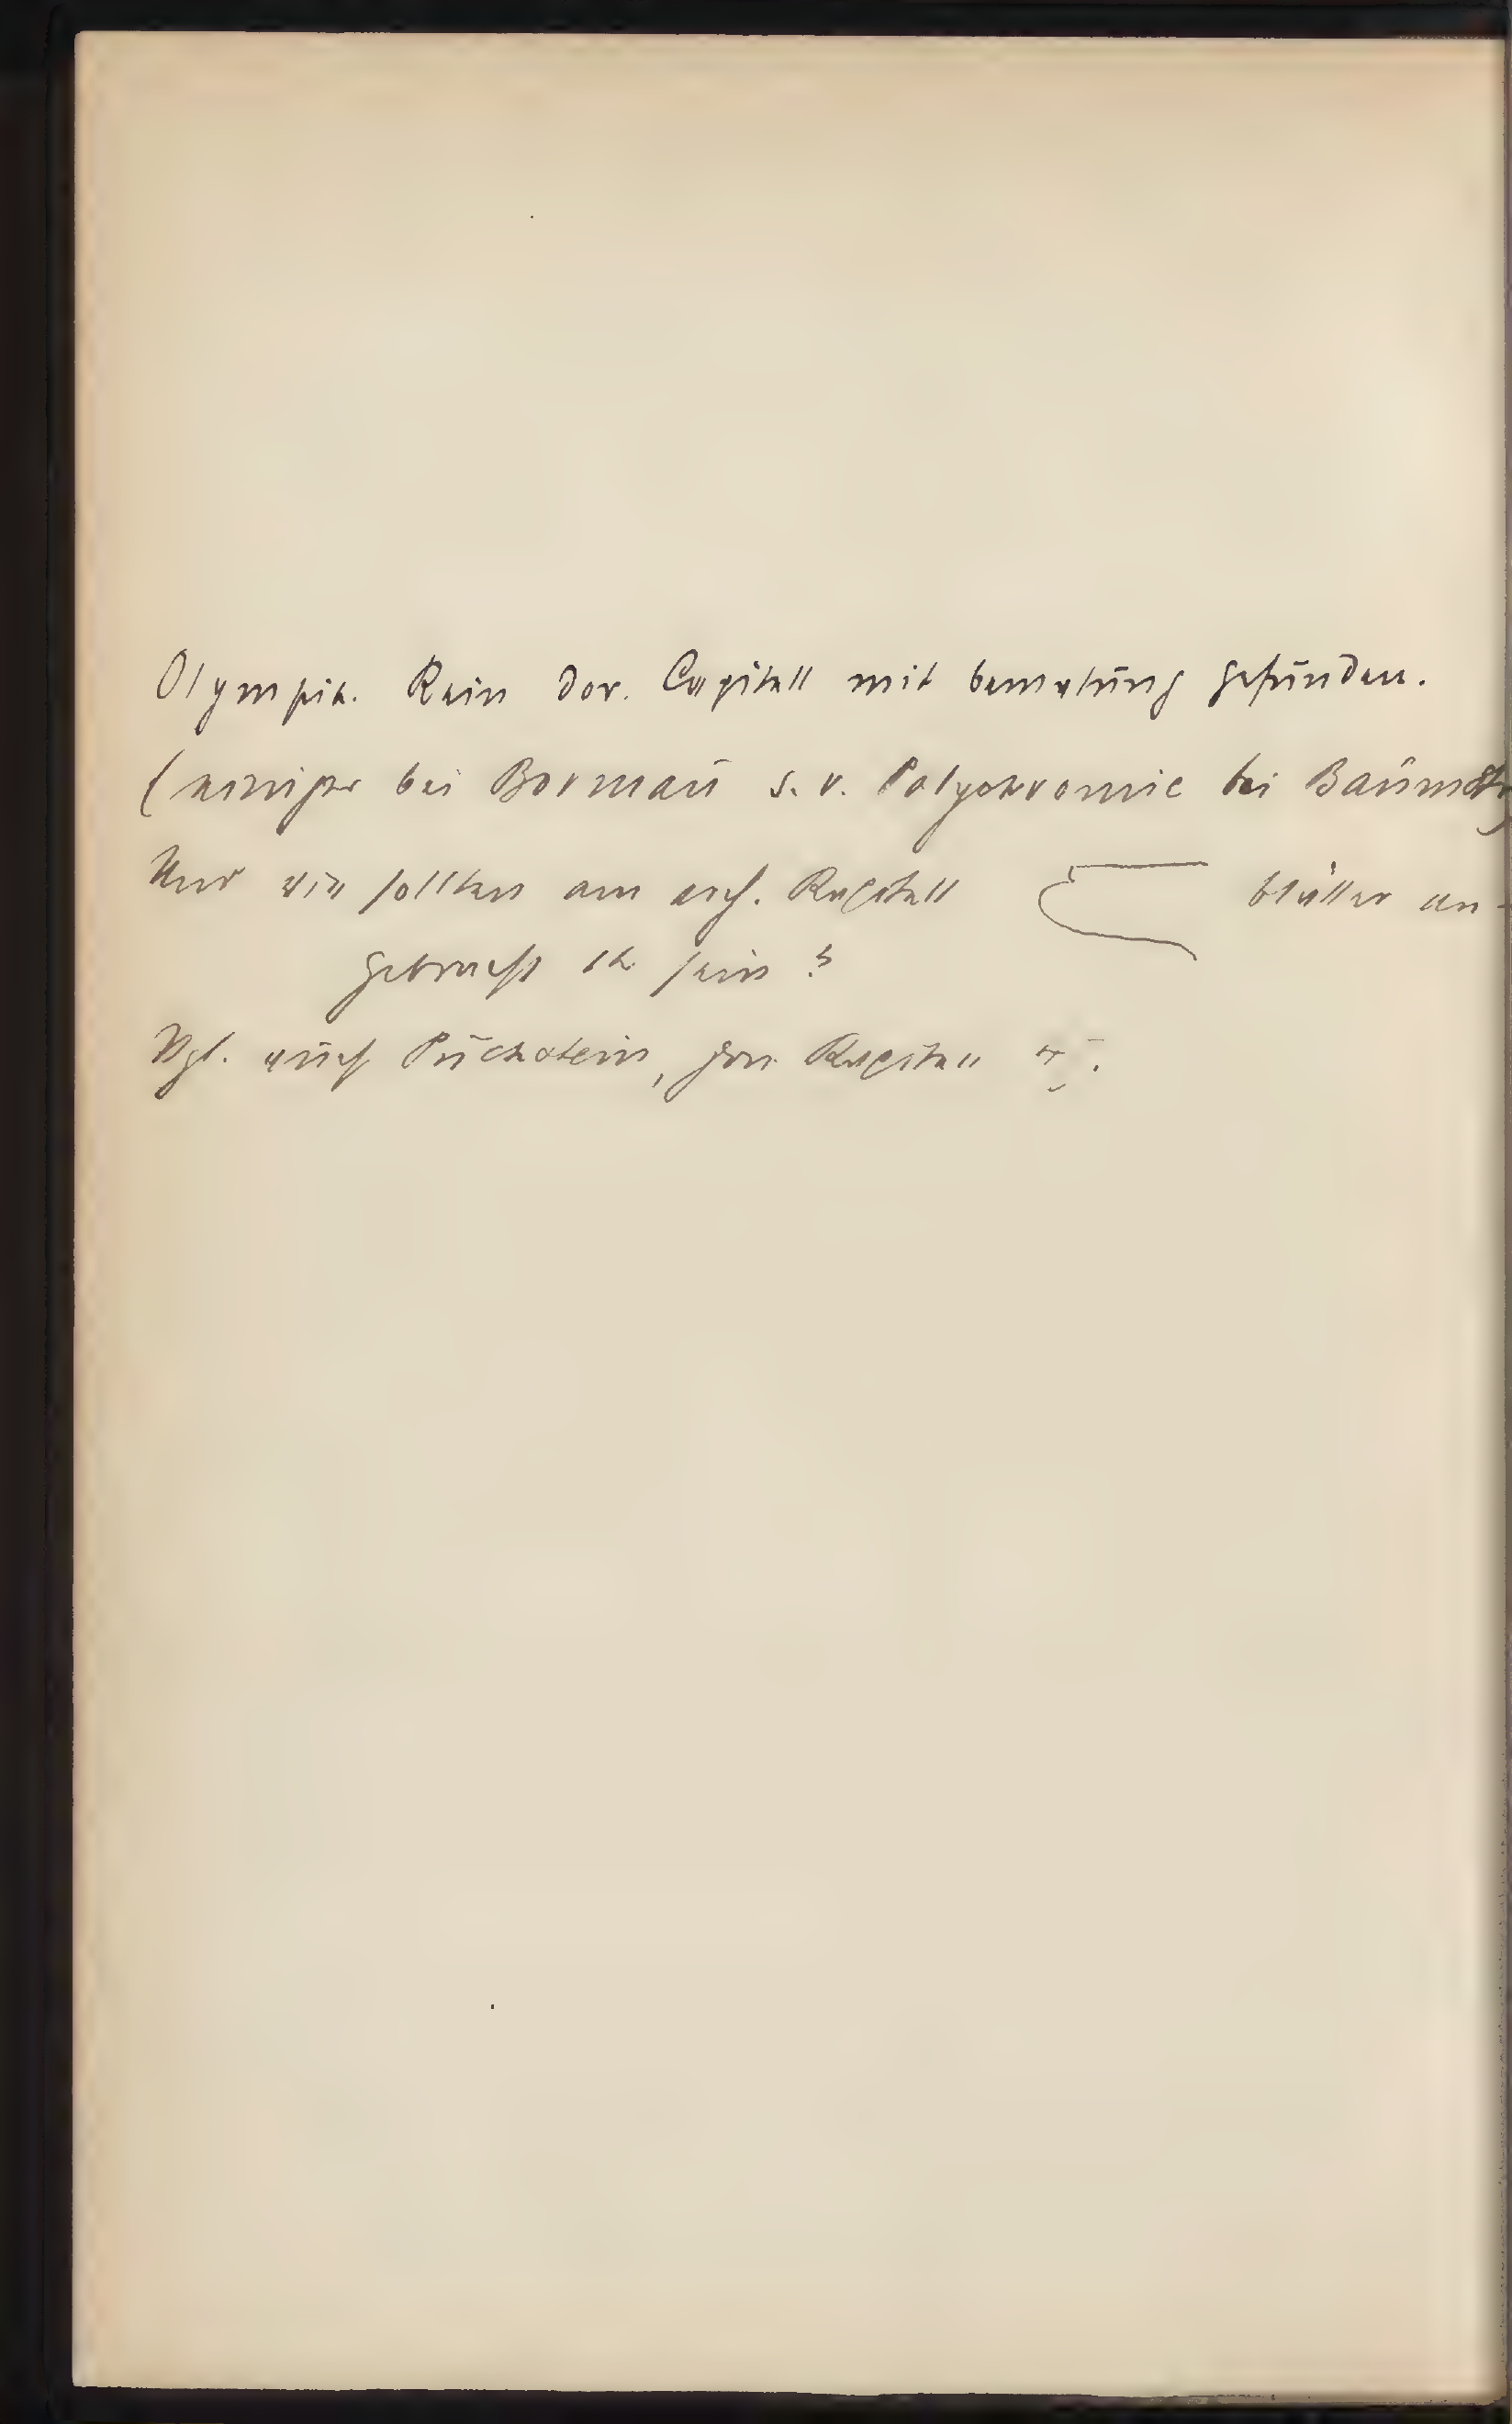 Olympia. Kein dor. Capitell mit bemalung gefunden.
(einiges bei Borrmañ s. v. Polychromie bei Baumstr
Und wie sollten am arch. Kapitell blätter an-
gebracht sein?
Vgl. auch Puchstein, Jon. Kapitell